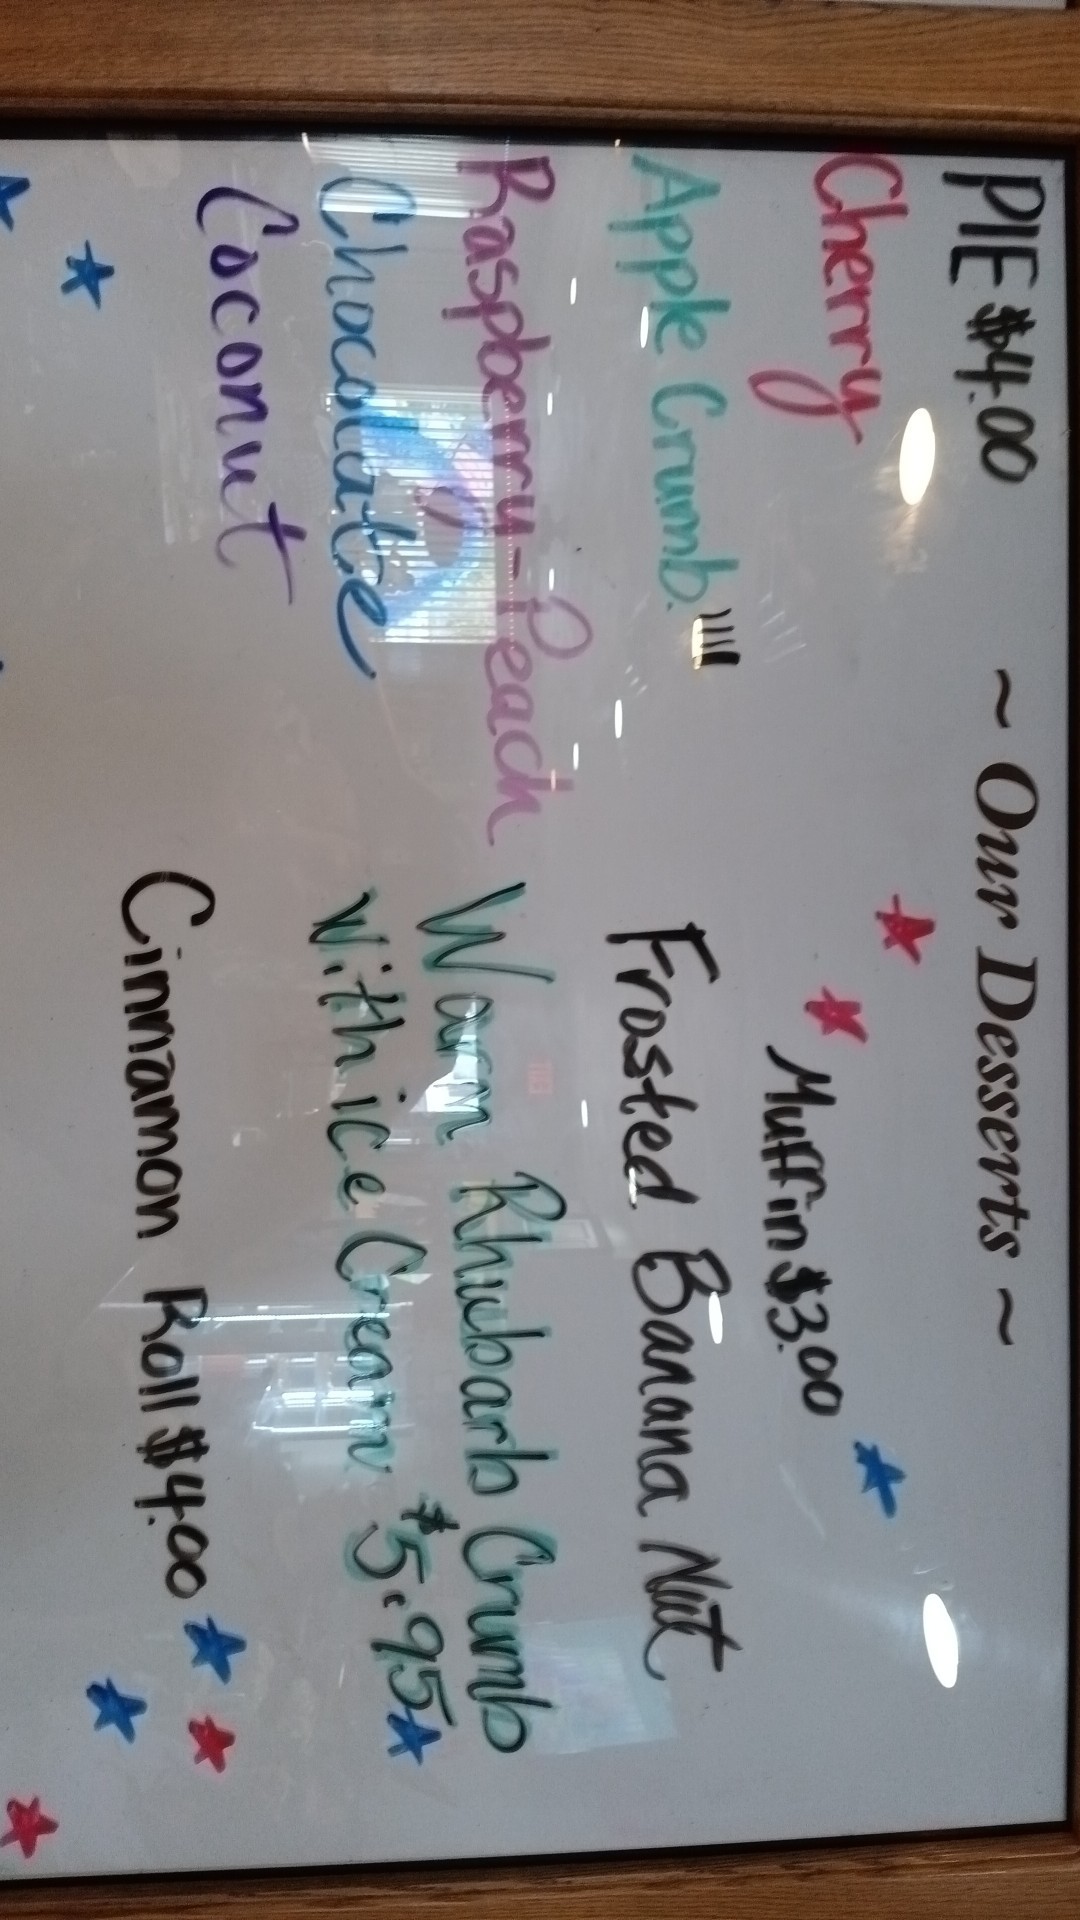 ~ Our Desserts ~
PIE $4.00
Cherry
Apple Crumb
Raspberry-Peach
Chocolate
Coconut
Muffin $3.00
Frosted Banana Nut
Warm Rhubarb Crumb
with ice Cream $5.95
Cinnamon Roll $4.00